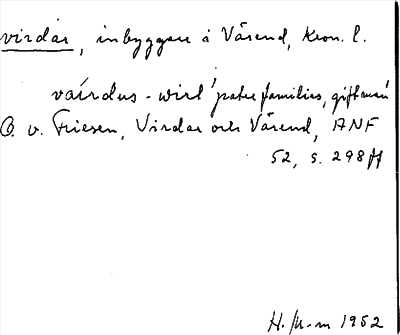 virdar, inbyggare i Värend, Kron. l.
vaírdus - wirt 'pater familias, giftman'
O. v. Friesen, Virdar och Värend, ANF
52, s. 298 ff
H. M-m 1952